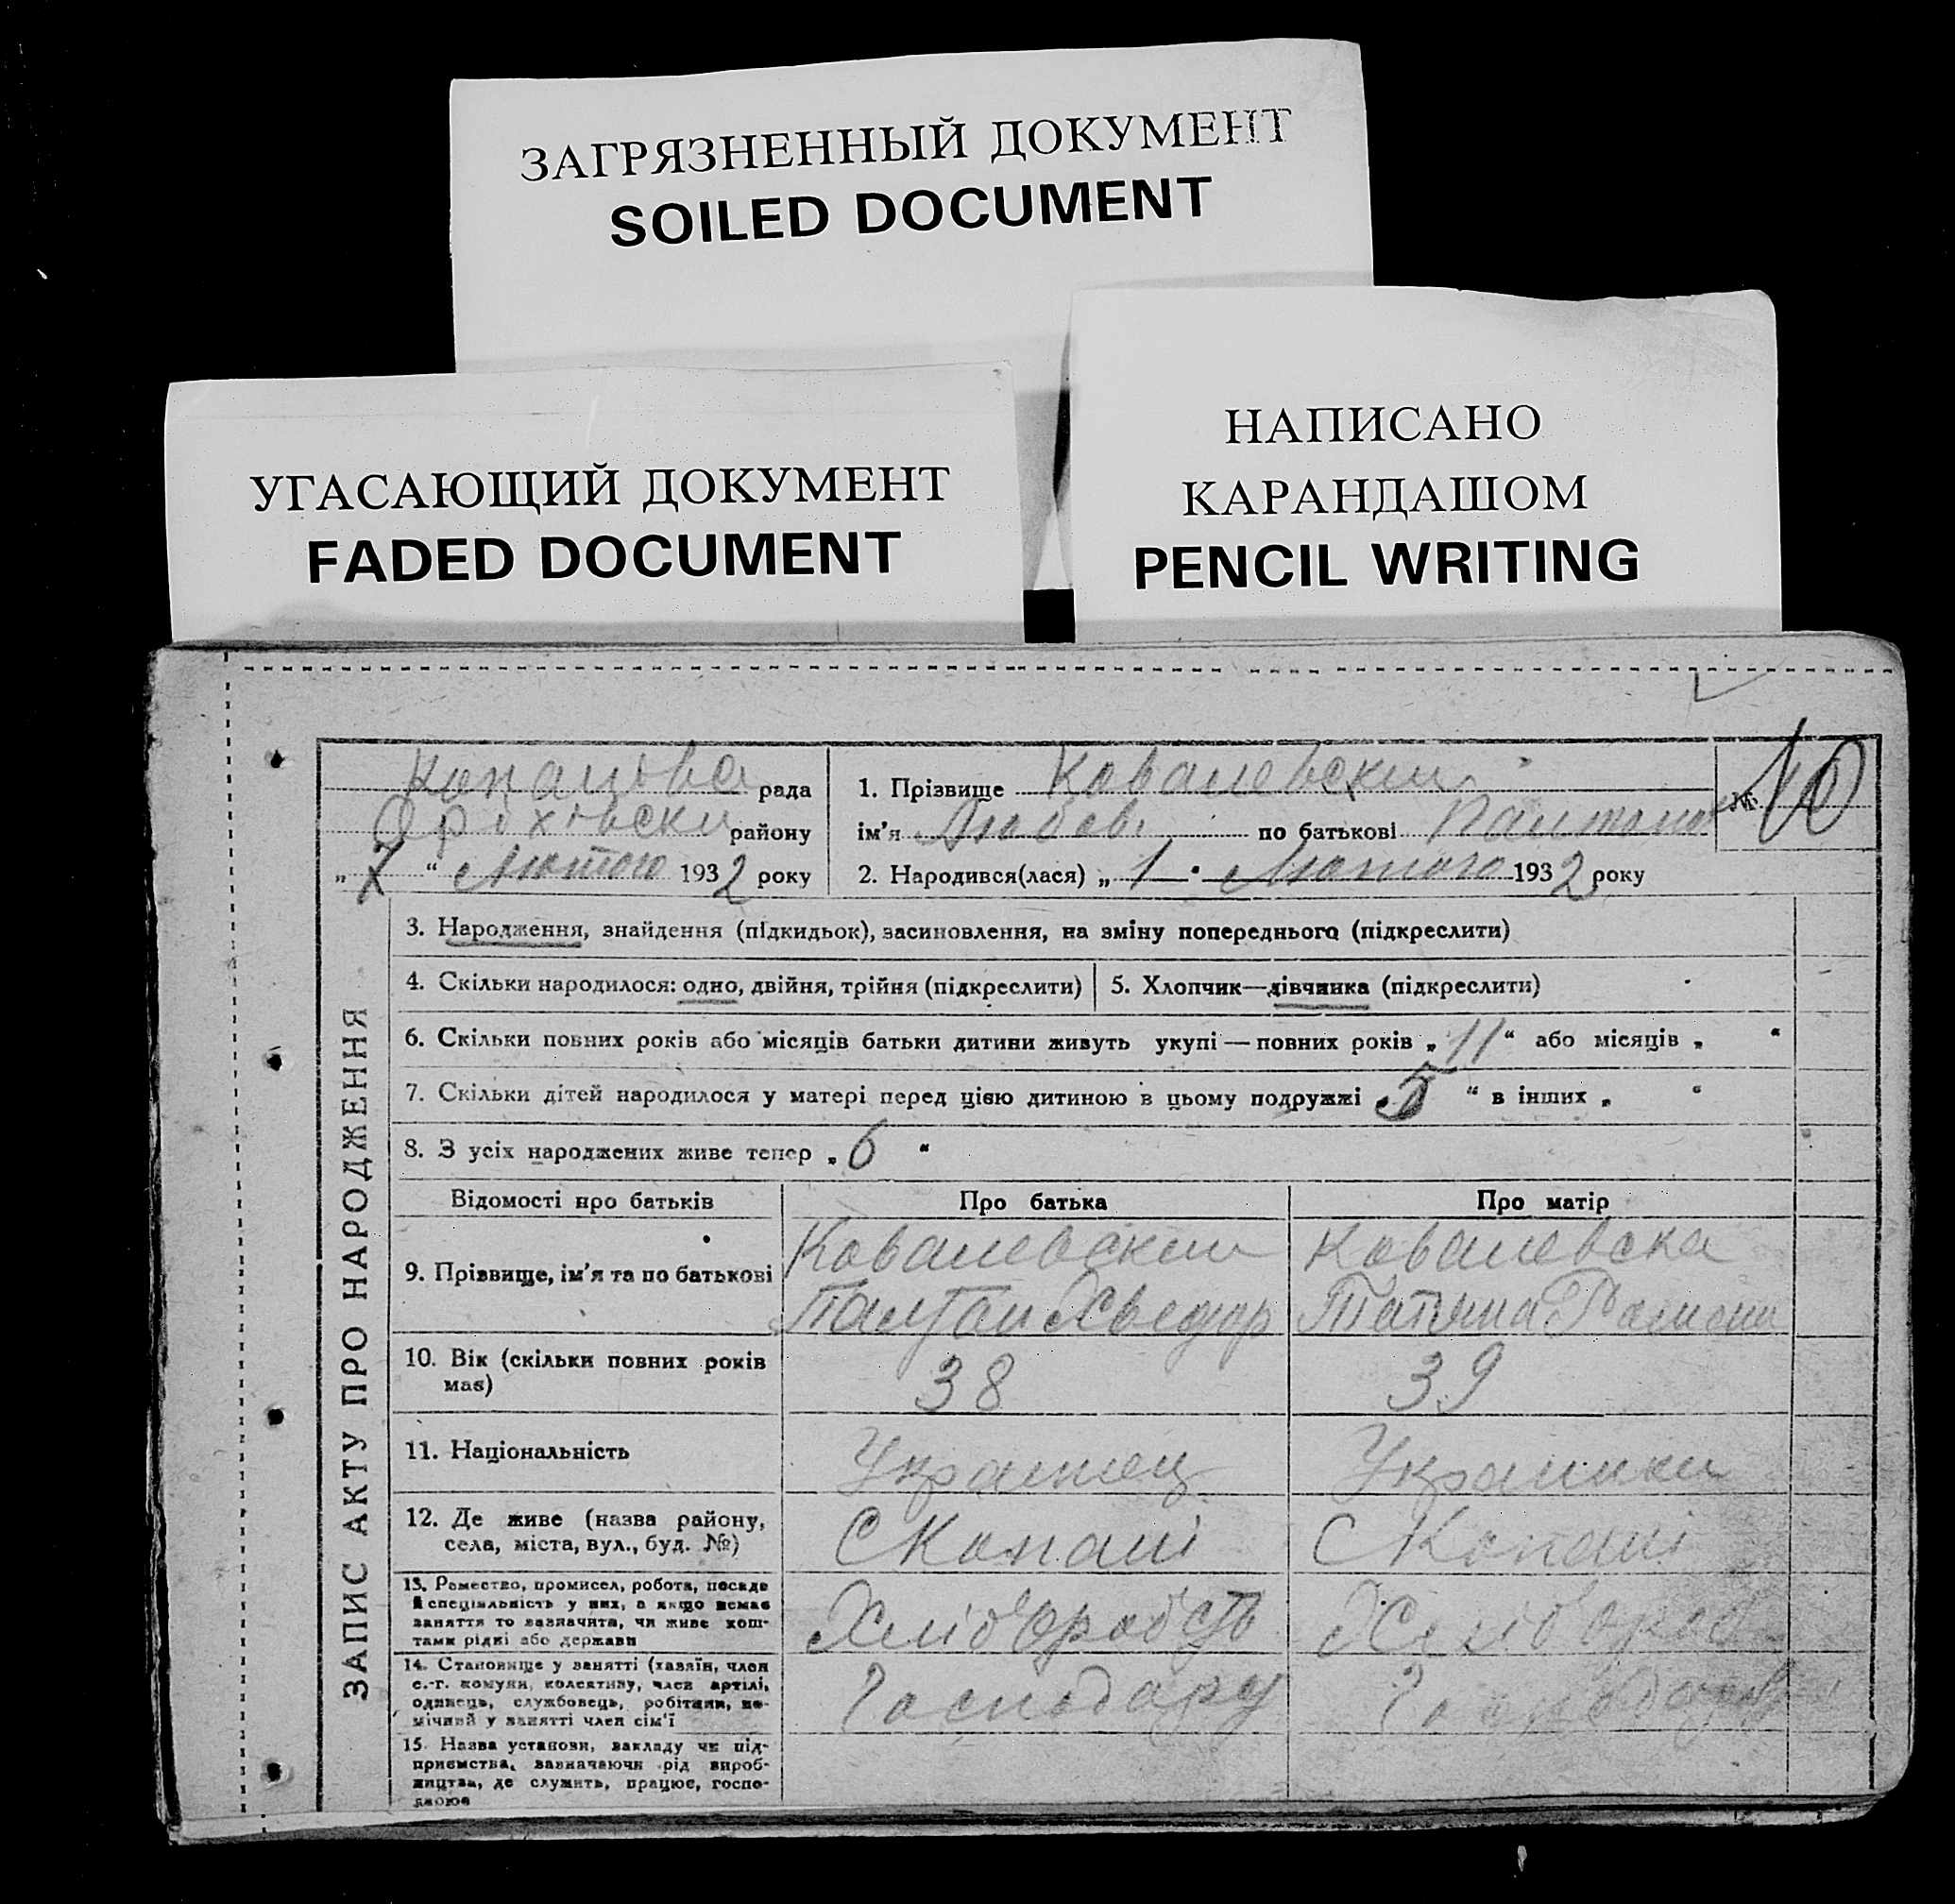 ЗАГРЯЗНЕННЫЙ ДОКУМЕНТ
SOILED DOCUMENT
УГАСАЮЩИЙ ДОКУМЕНТ
FADED DOCUMENT
НАПИСАНО
КАРАНДАШОМ
PENCIL WRITING
рада
району
„7“ Лютого 1932 року
1. Прізвище Ковалевский
№ 10
ім'я Любов по батькові
2. Народився(лася) „1 Лютого 1932 року
ЗАПИС АКТУ ПРО НАРОДЖЕННЯ
3. Народження, знайдення (підкидьок), засиновлення, на зміну попереднього (підкреслити)
4. Скільки народилося: одно, двійня, трійня (підкреслити)
5. Хлопчик—дівчинка (підкреслити)
6. Скільки повних років або місяців батьки дитини живуть укупі — повних років „11“ або місяців „ “
7. Скільки дітей народилося у матері перед цією дитиною в цьому подружжі „5“ в інших „ “
8. З усіх народжених живе тепер „6“
Відомості про батьків
Про батька
Про матір
9. Прізвище, ім'я та по батькові
Ковалевский
Ковалевска
10. Вік (скільки повних років
має)
38
39
11. Національність
Украинец
12. Де живе (назва району,
села, міста, вул., буд. №)
С Копані
С Копані
13. Ремество, промисел, робота, посада
й спеціяльність у них, а якщо немає
заняття то зазначити, чи живе кош-
тами рідні або держави
Хліборобств
Хлібороб
14. Становище у занятті (хазяїн, член
с.-г. комуни, колективу, член артілі,
одинець, службовець, робітник, по-
мічний у занятті член сім'ї
Господару
15. Назва установи, закладу чи під-
приємства, зазначаючи рід вироб-
ництва, де служить, працює, госпо-
дарює